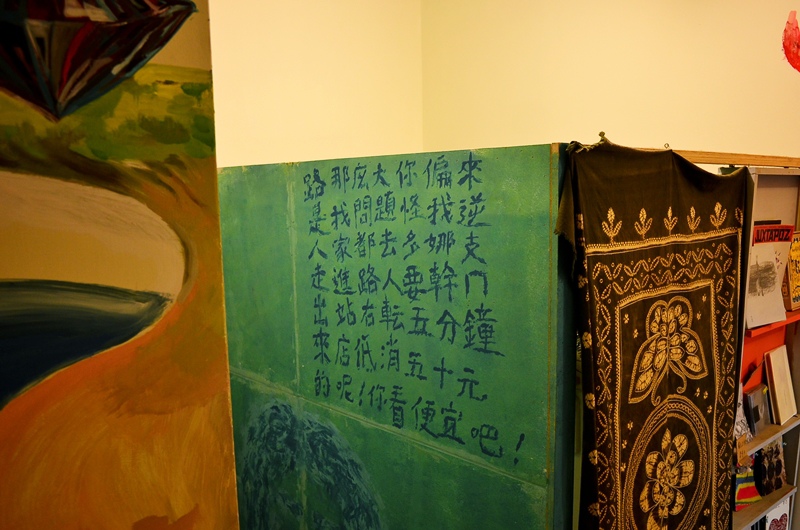 路那庅大你偏來
是我問題怪我逆
人家都去多娜支
走進路人要幹門
出站右転五分鐘
來店低消五十元
的呢！你看便宜吧！
JUXTAPOZ